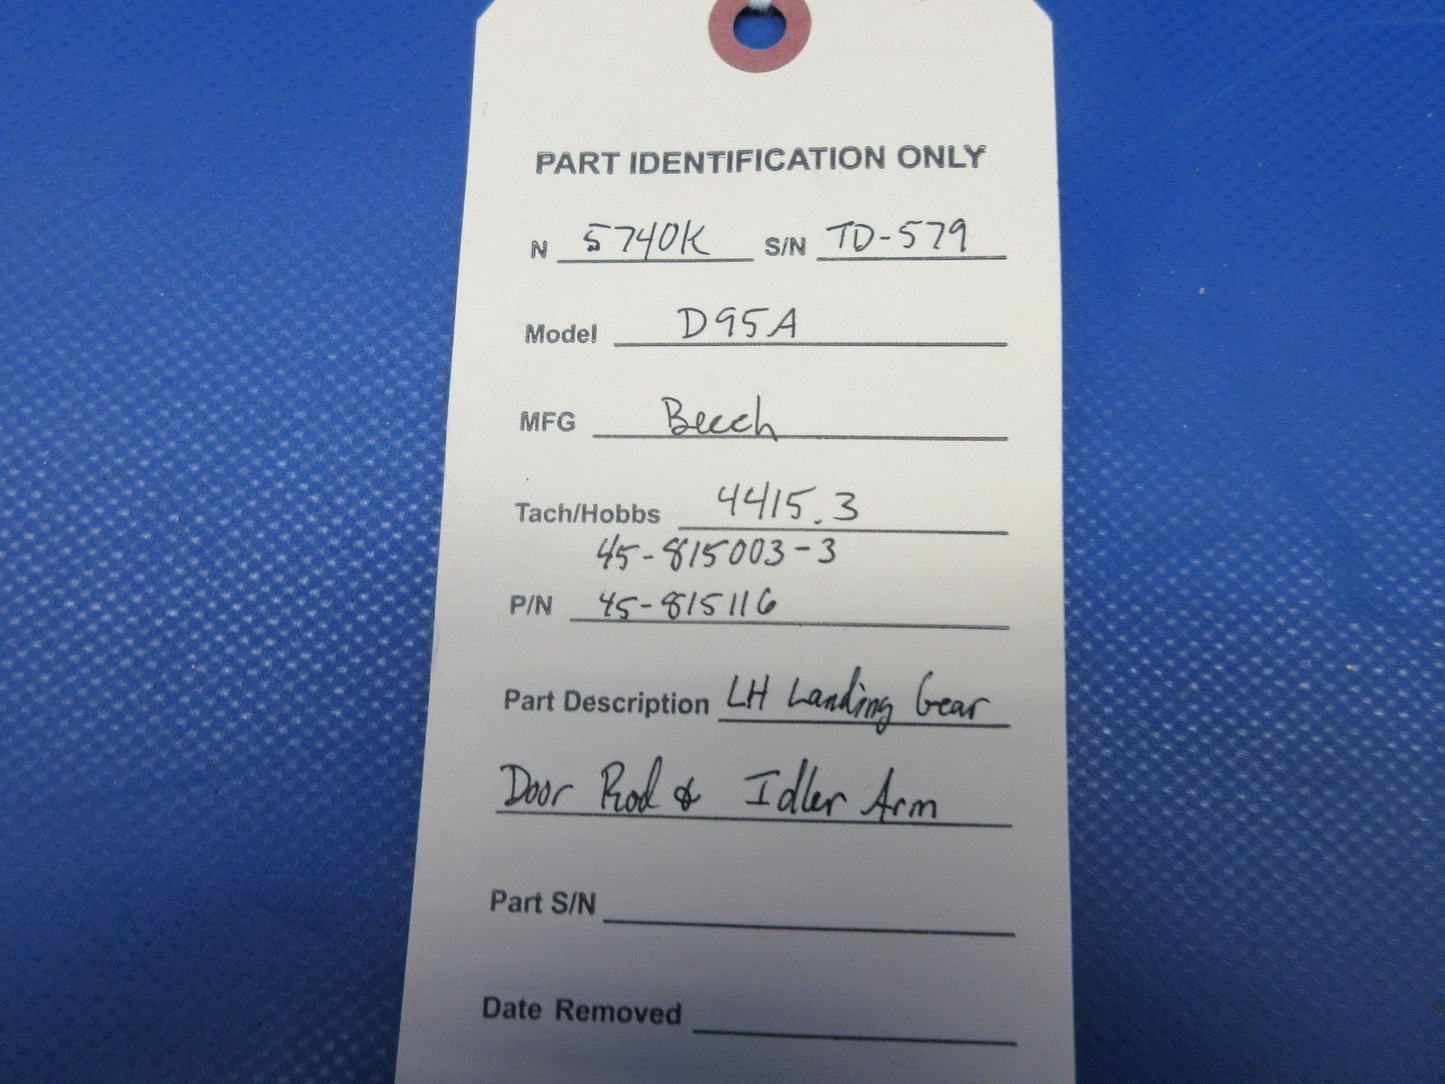 PART IDENTIFICATION ONLY
N 5740K S/N TD-579
Model D95A
MFG Beech
Tach/Hobbs 4415.3
45-815003-3
P/N 45-815116
Part Description LH Landing Gear
Door Rod & Idler Arm
Part S/N
Date Removed